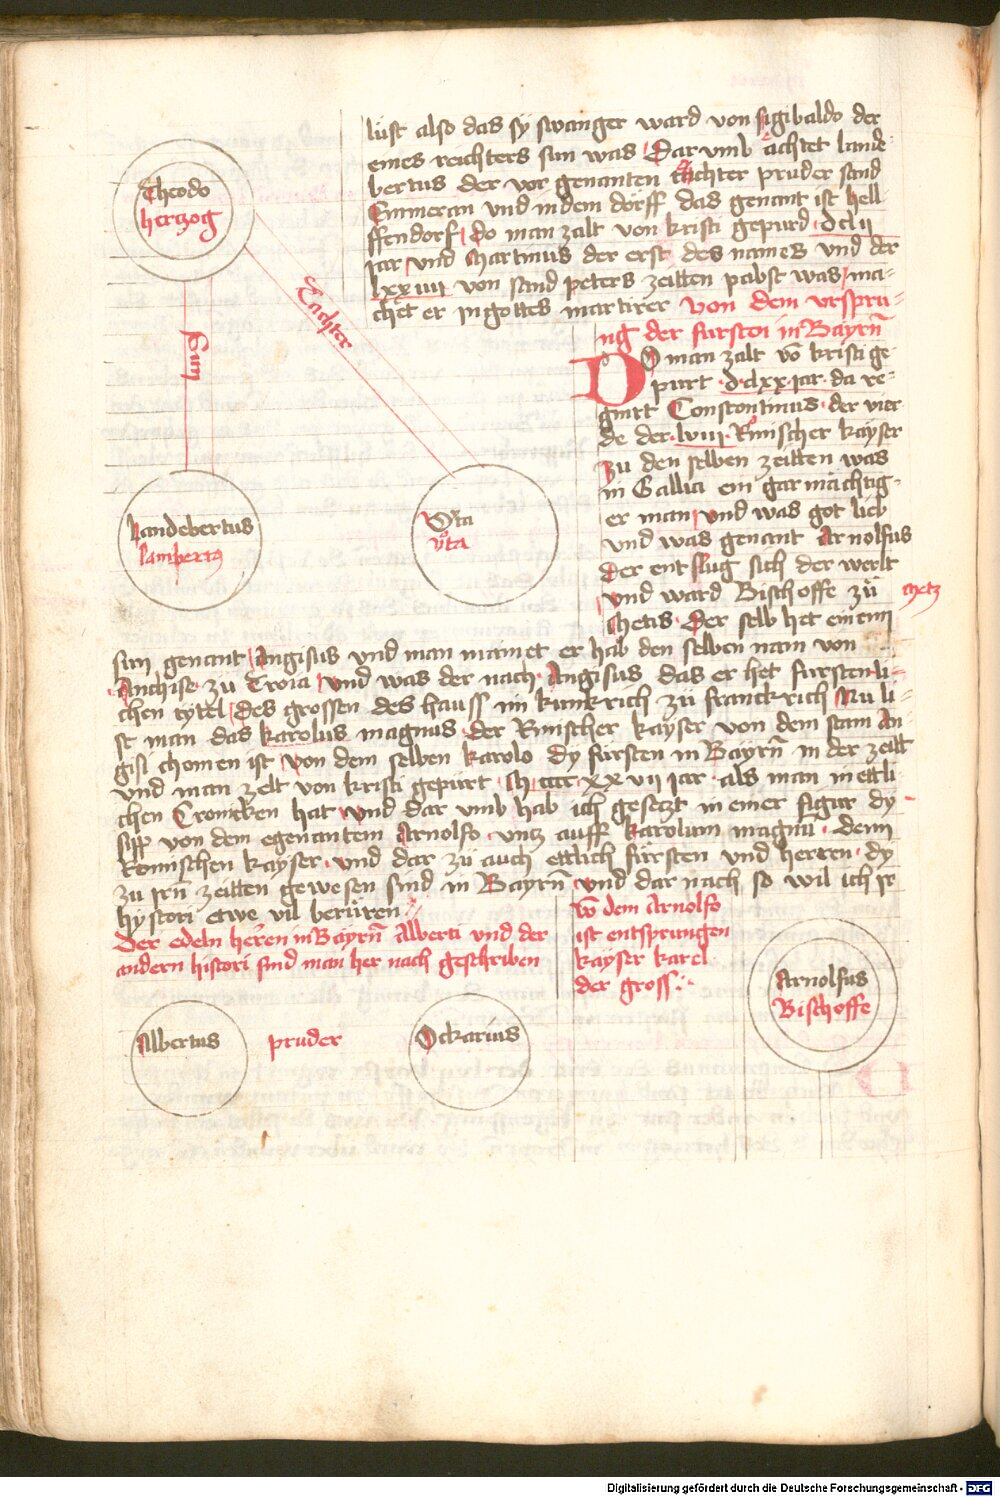 lust also das sy swanger ward von sigibaldo der
eines reichters sun was Dar vmb achtet lande
bertus der vor genanten tochter pruder sand
Emmeran vnd in dem dorff das genant ist hell
ffendorf Do man zalt von kristi gepurd dclij
jar vnd Martinus der erst des names vnd der
lxxiiij von sand peters zeitten pabst was ma-
chet er in gottes martirer von dem vrspru-
ng der fursten in Bayrn̄
Theodo
hertzog
Sun
Tochter
Landebertus
lampertg
Vta
vta
DO man zalt vō kristi ge-
purt dclxx jar da re-
gnirt Constontinus der vier
de der lviij Romischer kayser
zu den selben zeitten was
in Gallia ein gar mächtig-
er man vnd was got lieb
vnd was genant Arnolfus
Der entslug sich der werlt
vnd ward Bischoffe zü
Metis Der selb het einenn
Metz
sun genant Angisus vnd man mainet er hab den selben nam von
Anchise zu Troia vnd was der nach Angisus das er het furstenli-
chen tytel des grossen des hauss im kunkrich zü franckrich Nu li-
st man das karolus magnus der Rmischer kayser von dem stam An-
gisi chomen ist von dem selben karolo dy fürsten in Bayrn̄ in der zeitt
vnd man zelt von kristi gepurt M cccc xx vij jar als man in ettli
chen Cronicken hat vnd dar vmb hab ich gesetzt in einer figur dy
sipp von dem egenantem Arnolfo vntz auff karolum magnū denn
Romischen kayser vnd dar zü auch ettlich fürsten vnd herren dy
zu jrn̄ zeitten gewesen sind in Bayrn̄ vnd dar nach so wil ich jr
hystori etwe vil berüren
Der edeln heren in Bayrn̄ Alberti vnd der
andern histori sind man her nach geschriben
Vō dem Arnolfo
ist entsprungen
kayser karel
der gross
Arnolfus
Bischoffe
Albertus
pruder
Ockarius
Digitalisierung gefördert durch die Deutsche Forschungsgemeinschaft - DFG